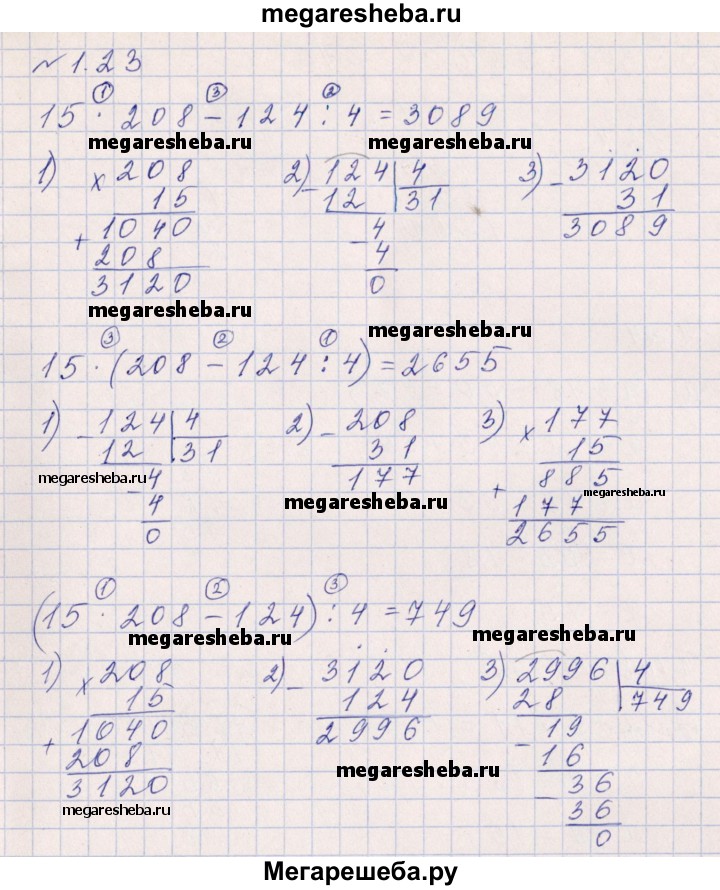 megaresheba.ru
№ 1.23
① ③ ②
15 · 208 - 124 : 4 = 3089
megaresheba.ru megaresheba.ru
1) × 208
15
+ 1040
208
3120
2) - 124 | 4
12 | 31
- 4
4
0
3) - 3120
31
3089
megaresheba.ru
megaresheba.ru
③ ② ①
15 · (208 - 124 : 4) = 2655
1) - 124 | 4
12 | 31
- 4
4
0
megaresheba.ru
2) - 208
31
177
megaresheba.ru
3) × 177
15
+ 885
177
2655
megaresheba.ru
① ② ③
(15 · 208 - 124) : 4 = 749
megaresheba.ru megaresheba.ru
1) × 208
15
+ 1040
208
3120
megaresheba.ru
2) - 3120
124
2996
megaresheba.ru
3) 2996 | 4
28 | 749
- 19
16
- 36
36
0
Мегарешеба.ру